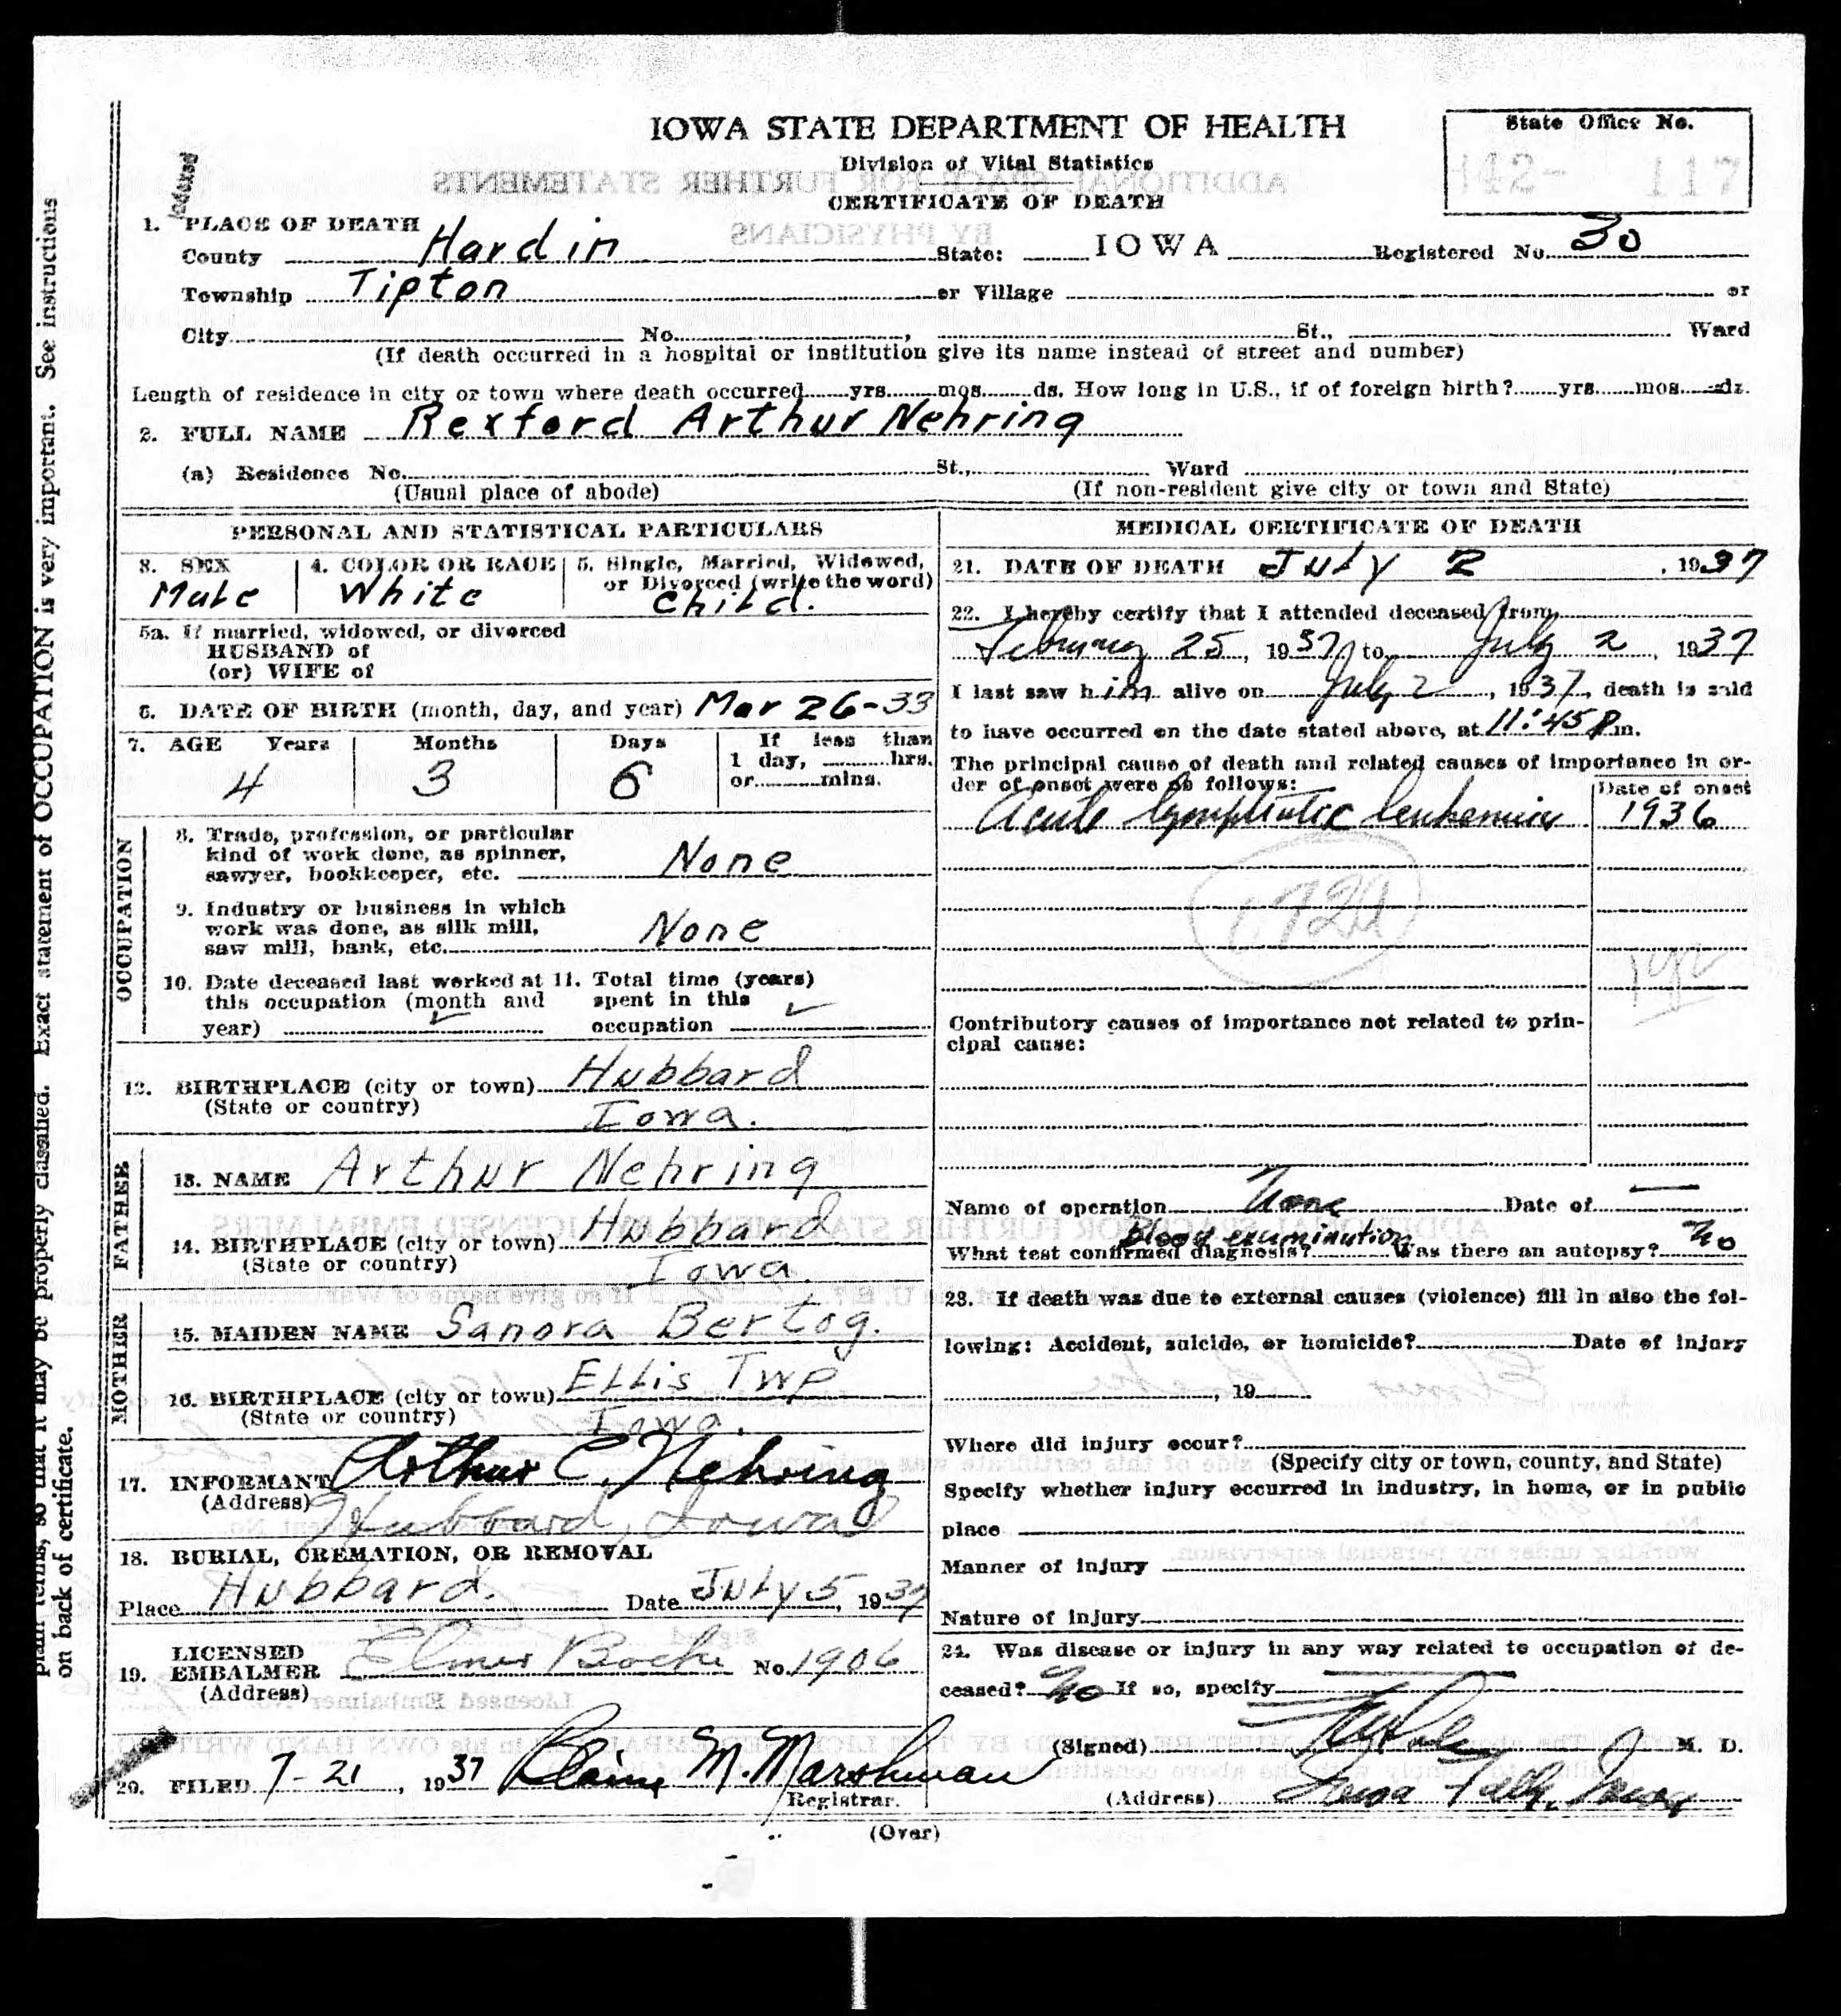 IOWA STATE DEPARTMENT OF HEALTH
Division of Vital Statistics
CERTIFICATE OF DEATH
State Office No.
142- 117
Indexed
1. PLACE OF DEATH
County Hardin State: IOWA Registered No. 30
Township Tipton or Village or
City No. , St., Ward
(If death occurred in a hospital or institution give its name instead of street and number)
Length of residence in city or town where death occurred yrs. mos. ds. How long in U.S., if of foreign birth? yrs. mos. ds.
2. FULL NAME Rexford Arthur Nehring
(a) Residence No. St., Ward
(Usual place of abode) (If non-resident give city or town and State)
PERSONAL AND STATISTICAL PARTICULARS
3. SEX 4. COLOR OR RACE 5. Single, Married, Widowed,
or Divorced (write the word)
Male White Child.
5a. If married, widowed, or divorced
HUSBAND of
(or) WIFE of
6. DATE OF BIRTH (month, day, and year) Mar 26-33
7. AGE Years Months Days If less than
1 day, hrs.
or mins.
4 3 6
OCCUPATION
8. Trade, profession, or particular
kind of work done, as spinner,
sawyer, bookkeeper, etc. None
9. Industry or business in which
work was done, as silk mill,
saw mill, bank, etc. None
10. Date deceased last worked at 11. Total time (years)
this occupation (month and spent in this
year) ✓ occupation ✓
12. BIRTHPLACE (city or town) Hubbard
(State or country) Iowa.
FATHER
13. NAME Arthur Nehring
14. BIRTHPLACE (city or town) Hubbard
(State or country) Iowa.
MOTHER
15. MAIDEN NAME Sanora Bertog.
16. BIRTHPLACE (city or town) Ellis Twp
(State or country) Iowa.
17. INFORMANT Arthur C. Nehring
(Address) Hubbard, Iowa
18. BURIAL, CREMATION, OR REMOVAL
Place Hubbard. Date July 5, 1937
19. LICENSED
EMBALMER Elmer No. 1906
(Address)
20. FILED 7-21, 1937 Blaine M. Marshman
Registrar.
MEDICAL CERTIFICATE OF DEATH
21. DATE OF DEATH July 2, 1937
22. I hereby certify that I attended deceased from
February 25, 1937 to July 2, 1937
I last saw him alive on July 2, 1937, death is said
to have occurred on the date stated above, at 11:45 P.m.
The principal cause of death and related causes of importance in or-
der of onset were as follows: Date of onset
Acute lymphatic leukemia 1936
Contributory causes of importance not related to prin-
cipal cause:
Name of operation None Date of —
Blood examination
What test confirmed diagnosis? Was there an autopsy? No
23. If death was due to external causes (violence) fill in also the fol-
lowing: Accident, suicide, or homicide? Date of injury
, 19
Where did injury occur?
(Specify city or town, county, and State)
Specify whether injury occurred in industry, in home, or in public
place
Manner of injury
Nature of injury
24. Was disease or injury in any way related to occupation of de-
ceased? No If so, specify
(Signed) M. D.
(Address) Iowa Falls, Iowa
(Over)
plain terms, so that it may be properly classified. Exact statement of OCCUPATION is very important. See instructions
on back of certificate.